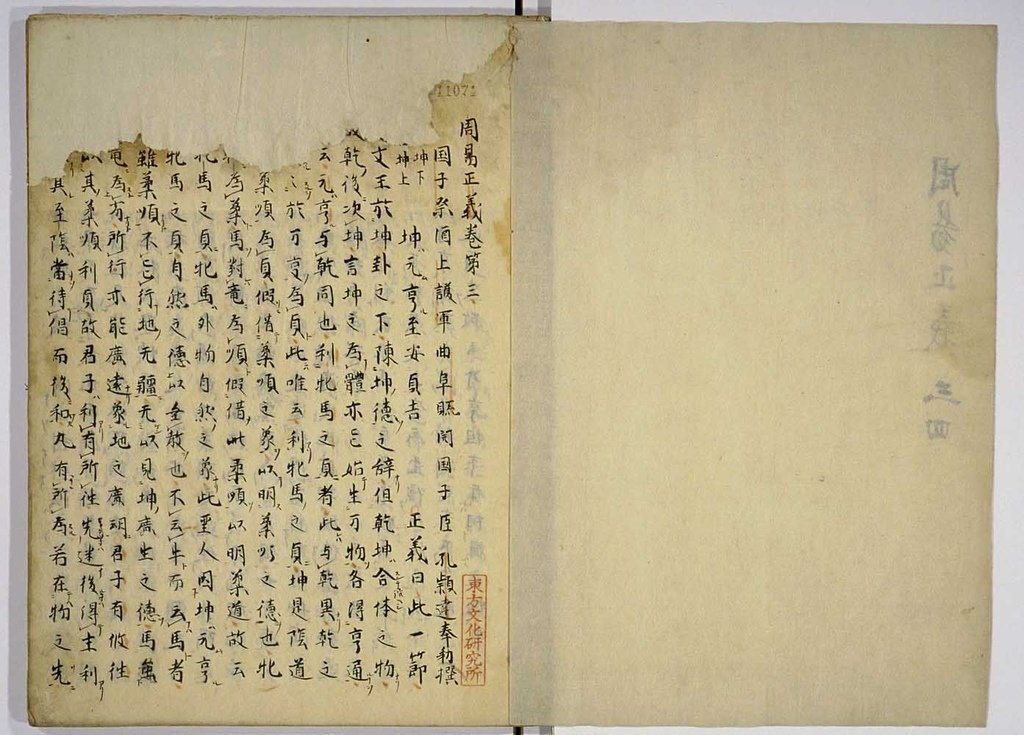 周易正義 三四
11071
周易正義卷第三
東方文化研究所
国子祭酒上護軍曲阜縣開国子臣孔穎達奉勅撰
坤下坤上 坤元亨至安貞吉 正義曰此一節
文王於坤卦之下陳坤德之辞但乾坤合体之物
乾後次坤言坤之為體亦能始生万物各得亨通
云元亨与乾同也利牝馬之貞者此与乾異乾之
於万亨為貞此唯云利牝馬之貞坤是陰道
柔順為貞假借柔順之象以明柔順之德也牝
為柔馬對竜為順假借此柔順以明柔道故云
牝馬之貞牝馬外物自然之象此聖人因坤元亨
牝馬之貞自然之德以垂教也不云牛而云馬者
雖柔順不能行地无疆无以見坤廣生之德馬雖
竜為劣所行亦能廣遠象地之廣君子有攸往
以其柔順利貞故君子利有所往先迷後得主利
其至陰當待倡而後和凡有所為若在物之先